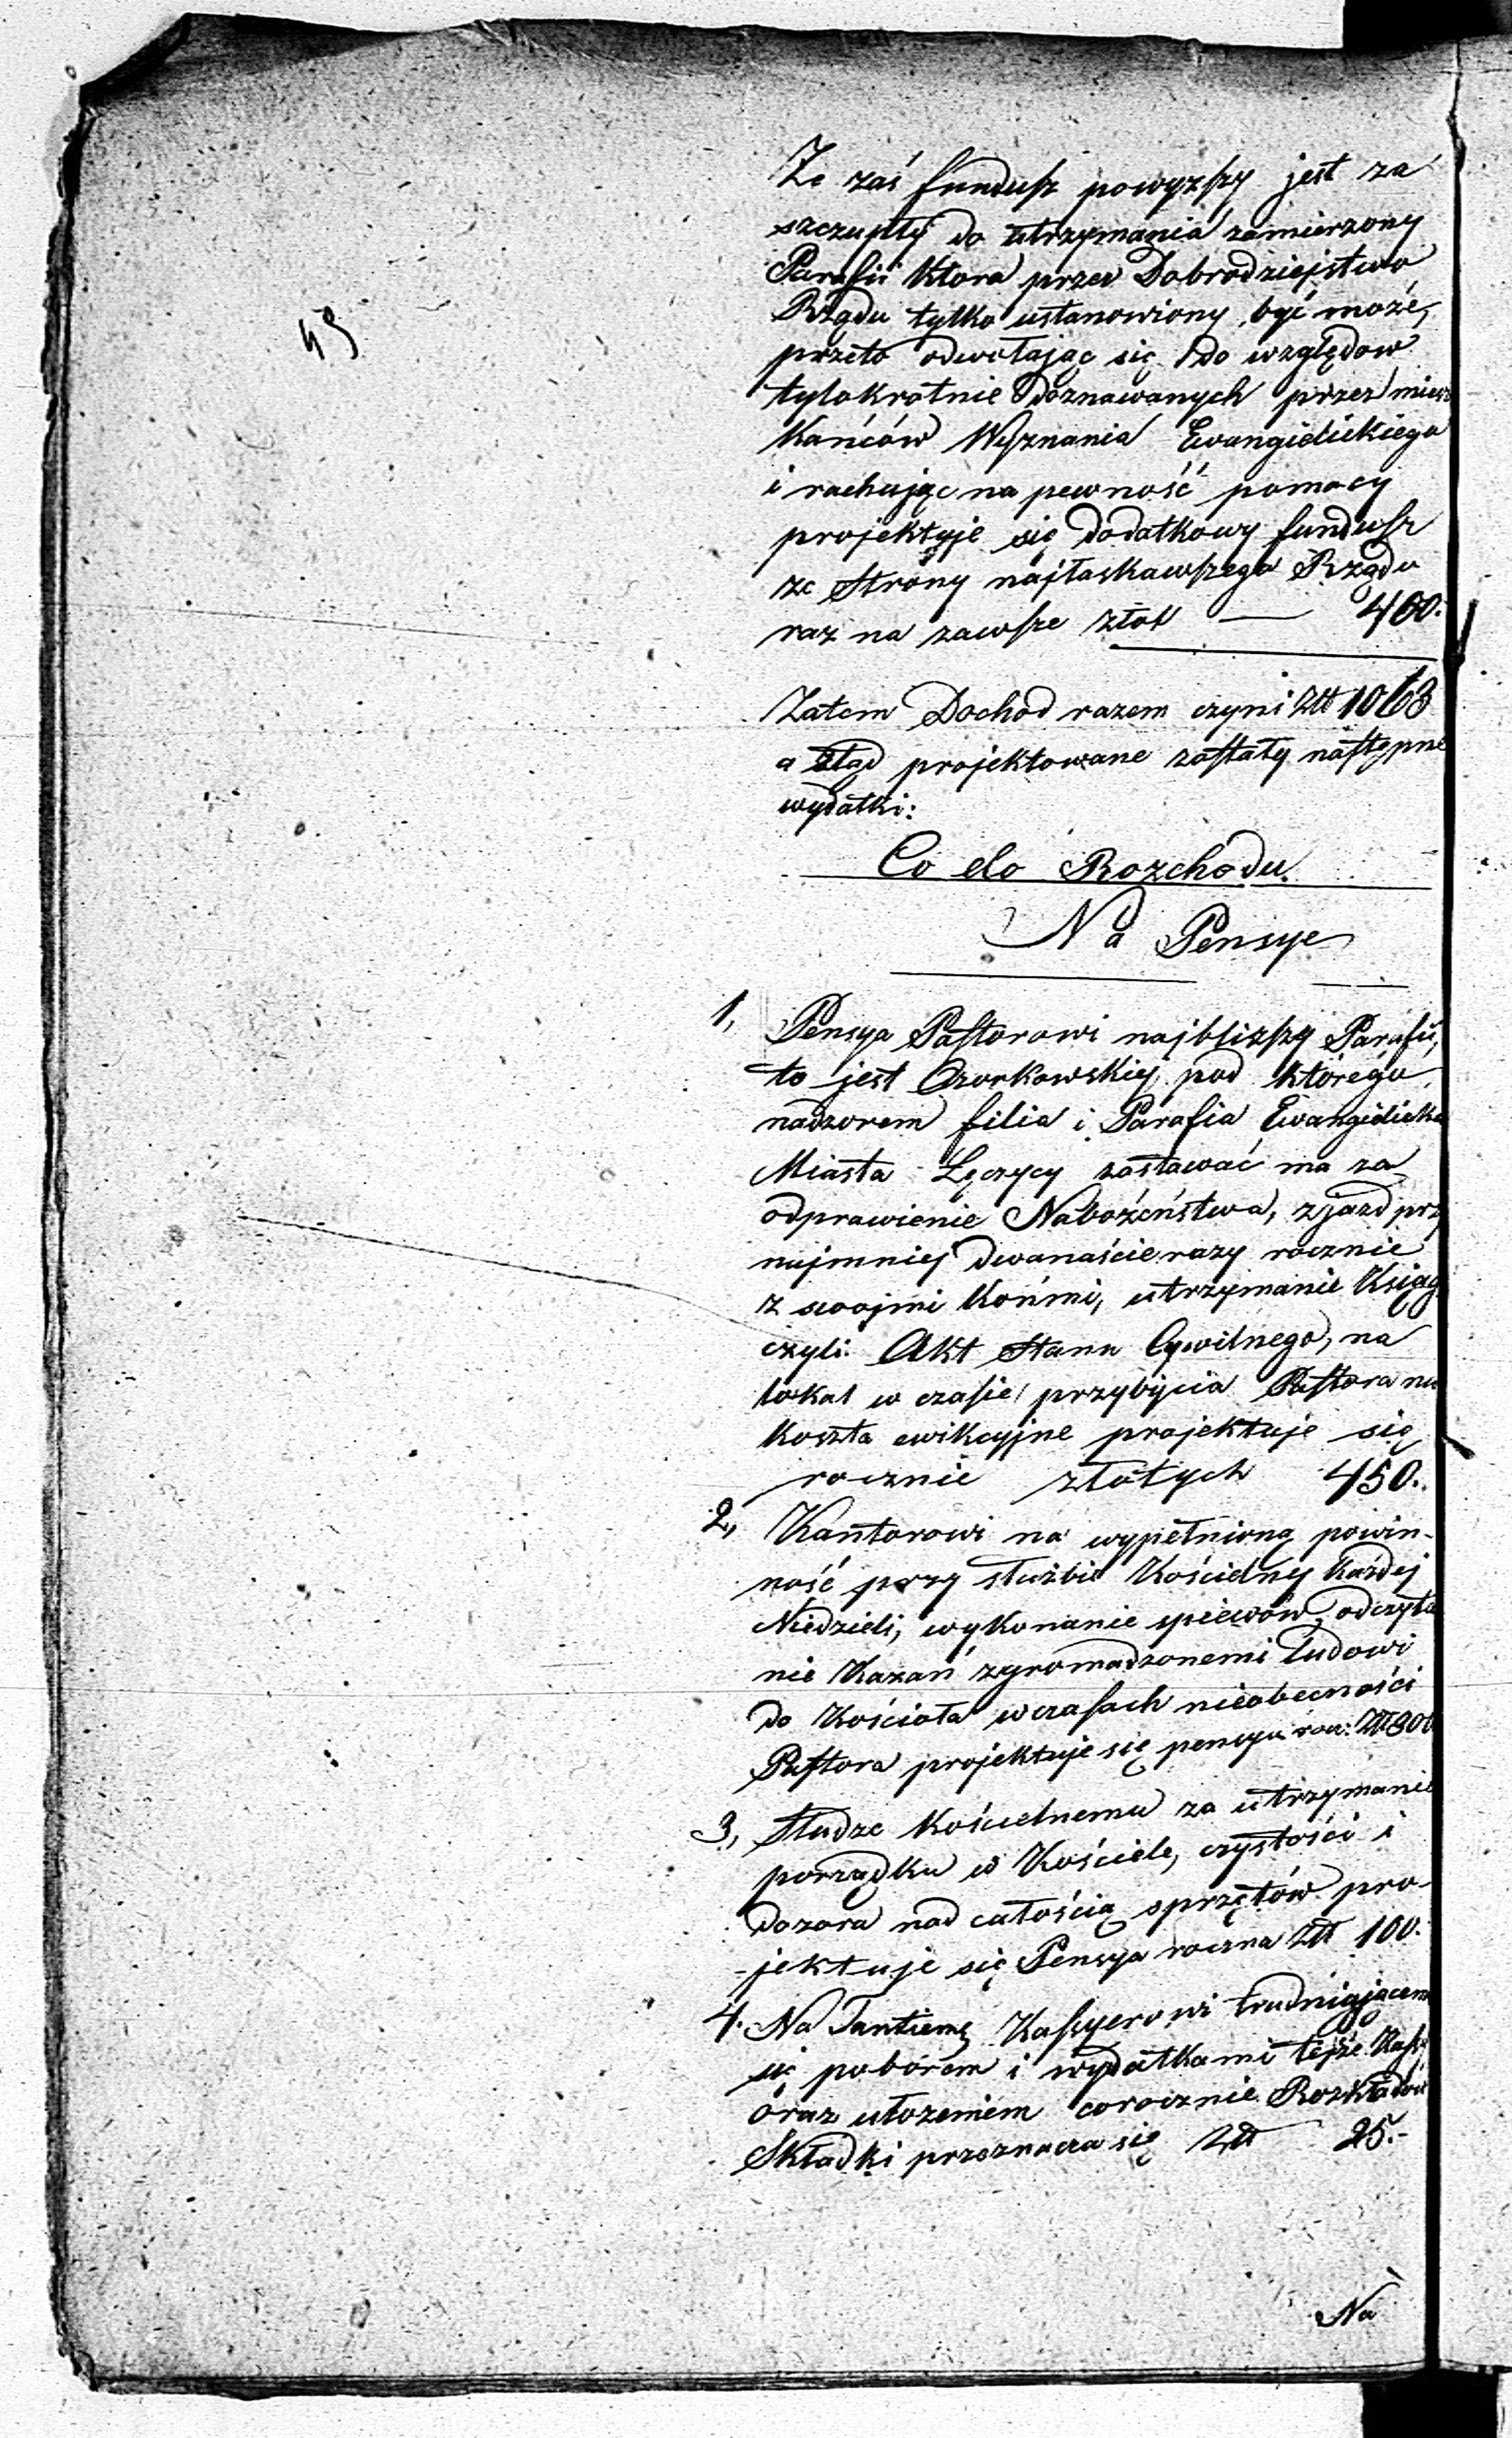 Że zaś fundusz powyższy jest za
szczupły do utrzymania zamierzony
Parafii która przez Dobrodziejstwo
Rządu tylko ustanowiony być może,
przeto odwołając się do względow
tylokrotnie doznawanych przez miesz
kańców Wyznania Ewangielickiego
i rachując na pewność pomocy
projektyje się dodatkowy fundusz
ze Strony najłaskawszego Rządu
raz na zawsze złot — 400.
Zatem Dochod razem czyni Złt 1063
a ztąd projektowane zostały następne
wydatki:
Co do Rozchodu.
Na Pensye
1, Pensya Pastorowi najbliższy Parafii,
to jest Ozorkowskiej pod którego
nadzorem filia i Parafia Ewangielicka
Miasta Łęczycy zostawać ma za
odprawienie Nabożeństwa, zjazd przy
najmniej dwanaście razy rocznie
z swojmi Końmi, utrzymanie Ksiąg
czyli Akt Stanu Cywilnego, na
lokal w czasie przybycia Pastora na
Koszta ewikcyjne projektuje się
rocznie złotych 450.
2, Kantorowi na wypełnioną powin-
ność przy służbie Kościelny Każdej
Niedzieli, wykonanie spiewów, odczyta
nie Kazań zgromadzonemi Ludowi
do Kościoła w czasach nieobecności
Pastora projektuje się pensya rocz: Złt 300
3, Słudze Kościelnemu za utrzymanie
porządku w Kościele, czystości i
dozora nad całością sprzętów pro-
-jektuje się Pensya roczna Złt 100.
4. Na Tantiemę Kassyerowi trudniącem
się poborem i wydatkami tejże Kassy
oraz ułożeniem corocznie Rozkładow
Składki przeznacza się Złt 25.-
Na